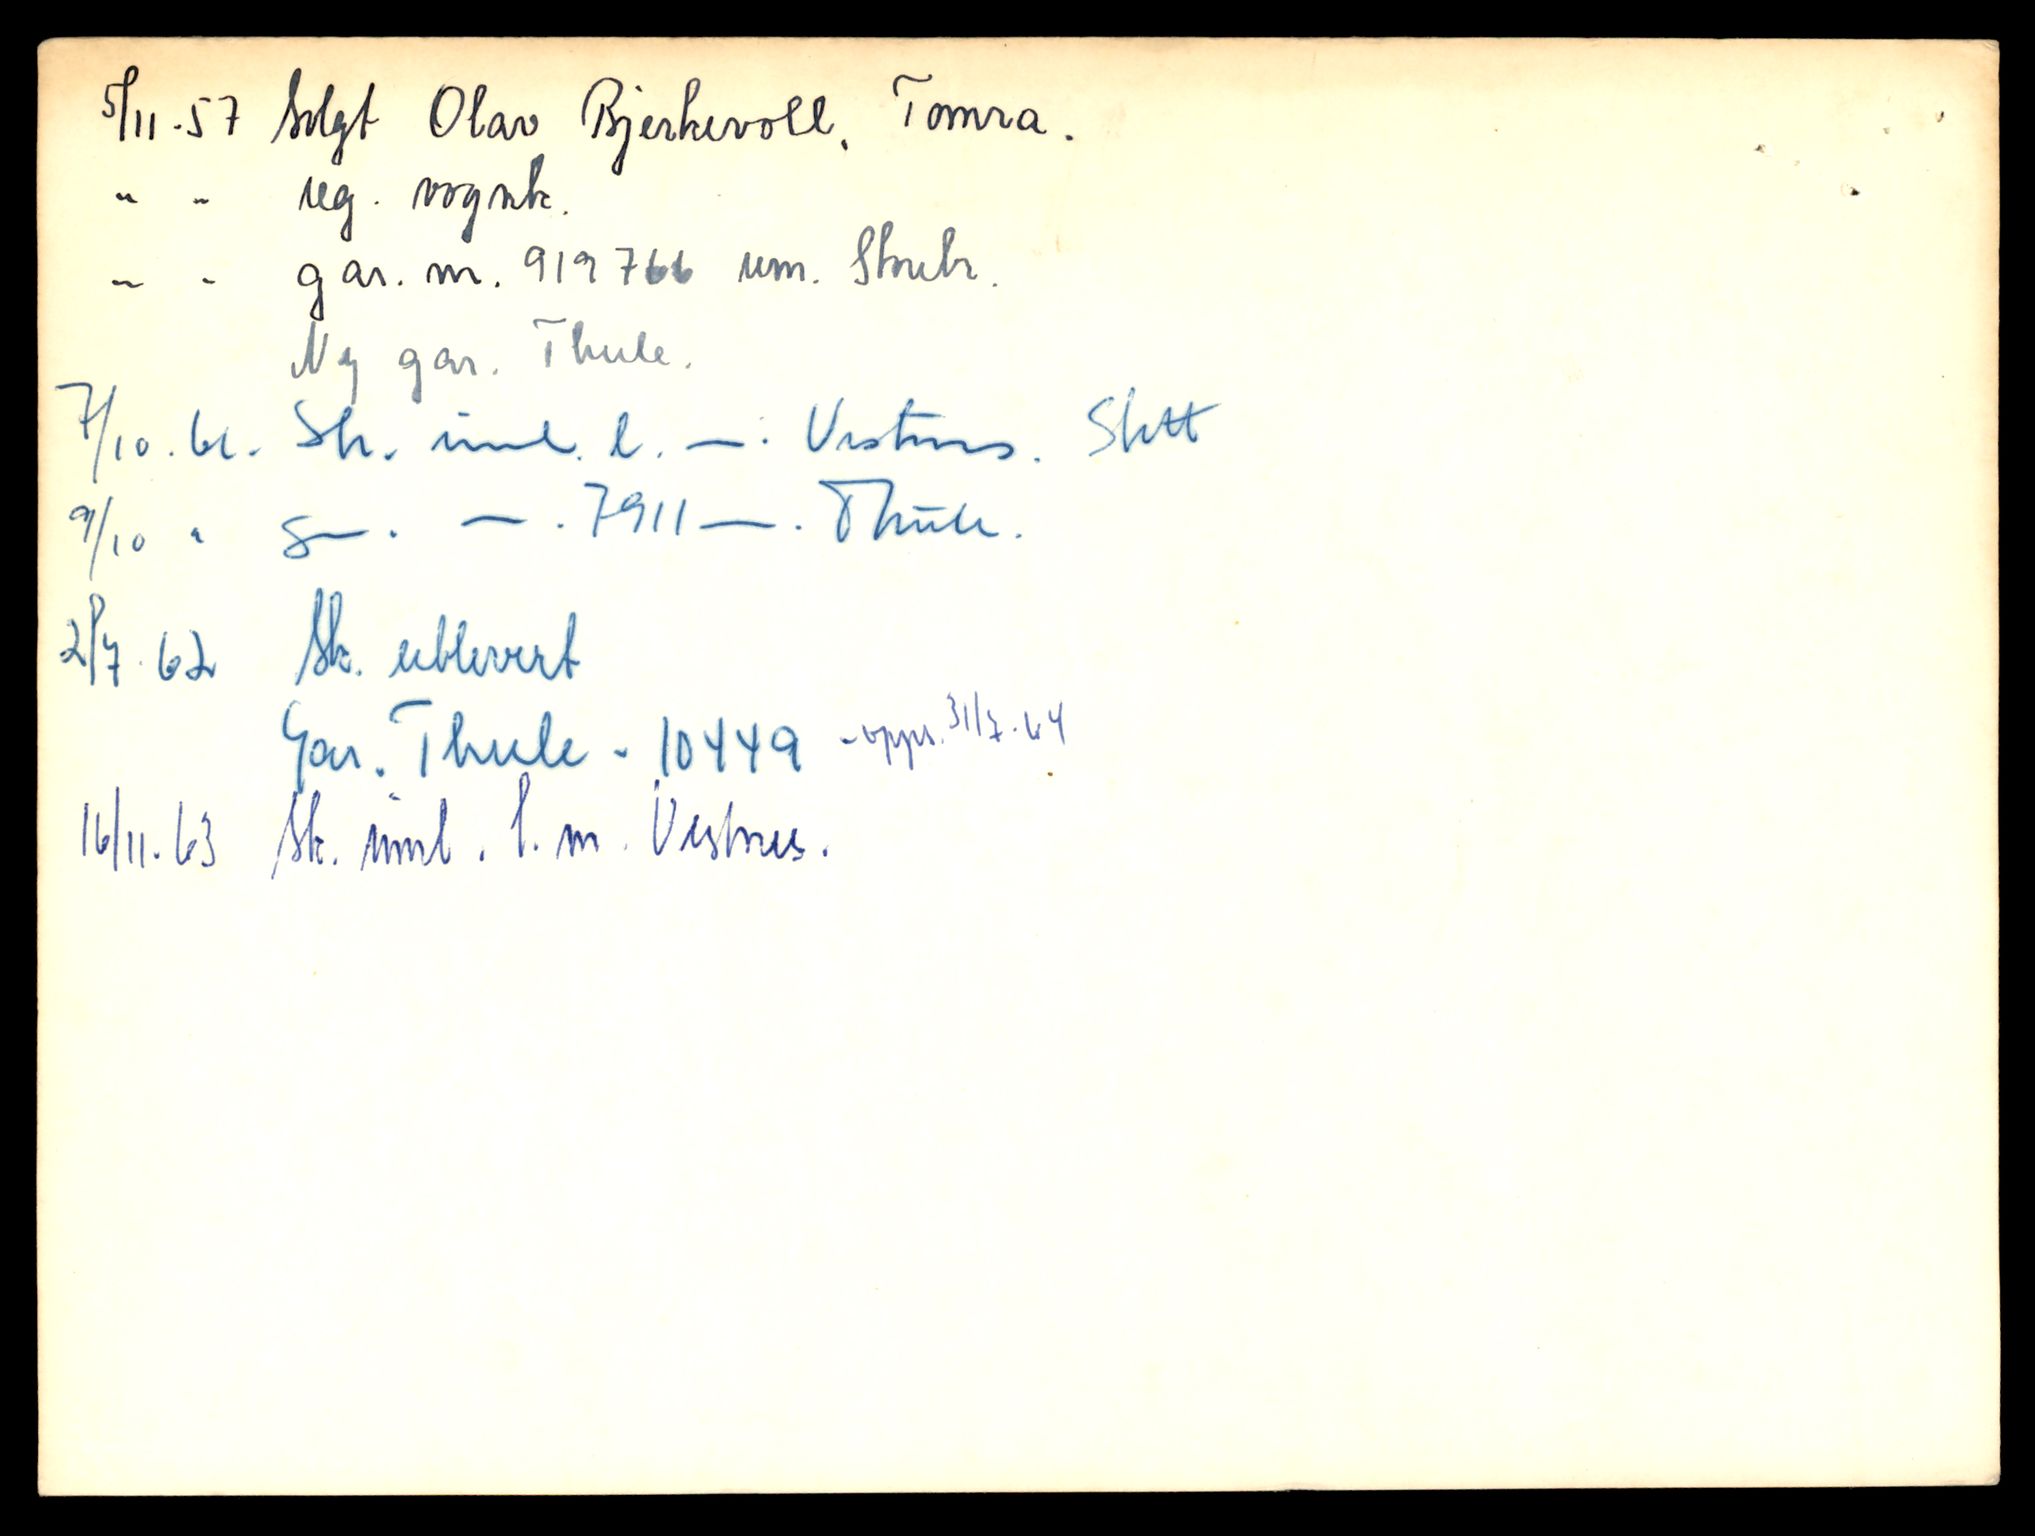 5/11-57 Solgt Olav Bjerkevoll, Tomra.
" " reg. vognk.
" " gar. nr. 919766 um. Storebr.
Ny gar. Thule.
7/10.61. Sk. innl. l. —. Vestnes. Slett
9/10 " g—. —. 7911 —. Thule.
2/7.62 Sk. utlevert
Gar. Thule - 10449 - opps. 31/7.64
16/11.63 Sk. innl. l. m. Vestnes.